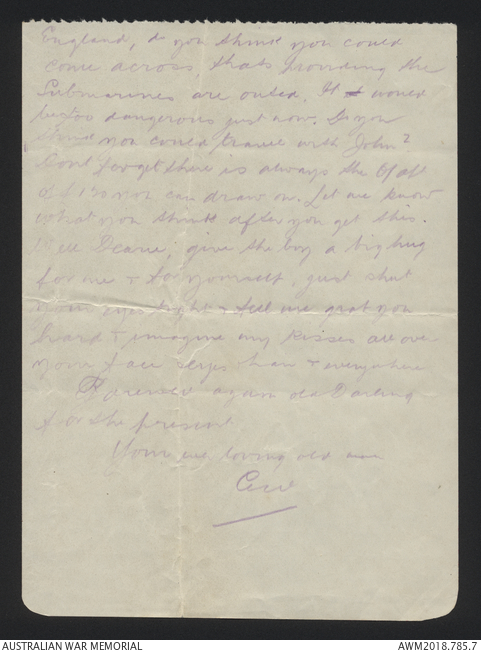 England, do you think you could
come across thats providing the
Submarines are ousted. It would
be too dangerous just now. Do you
think you could travel with John?
Dont forget there is always the
£150 you can draw on. Let me know
what you think after you get this.
Well Dearie, give the boy a big hug
for me & for yourself, just shut
your eyes tight & feel me grab you
hard & imagine my kisses all over
your face eyes hair & everywhere
again old Darling
for the present
Your loving old man
Cecil
AUSTRALIAN WAR MEMORIAL
AWM2018.785.7